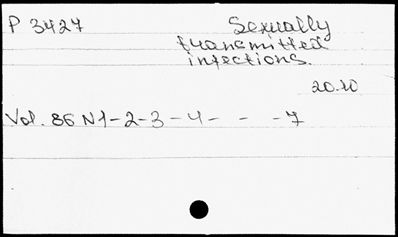 P 3427 Sexually
transmitted
infections.
20.10
Vol. 86 N 1-2-3-4- - -7